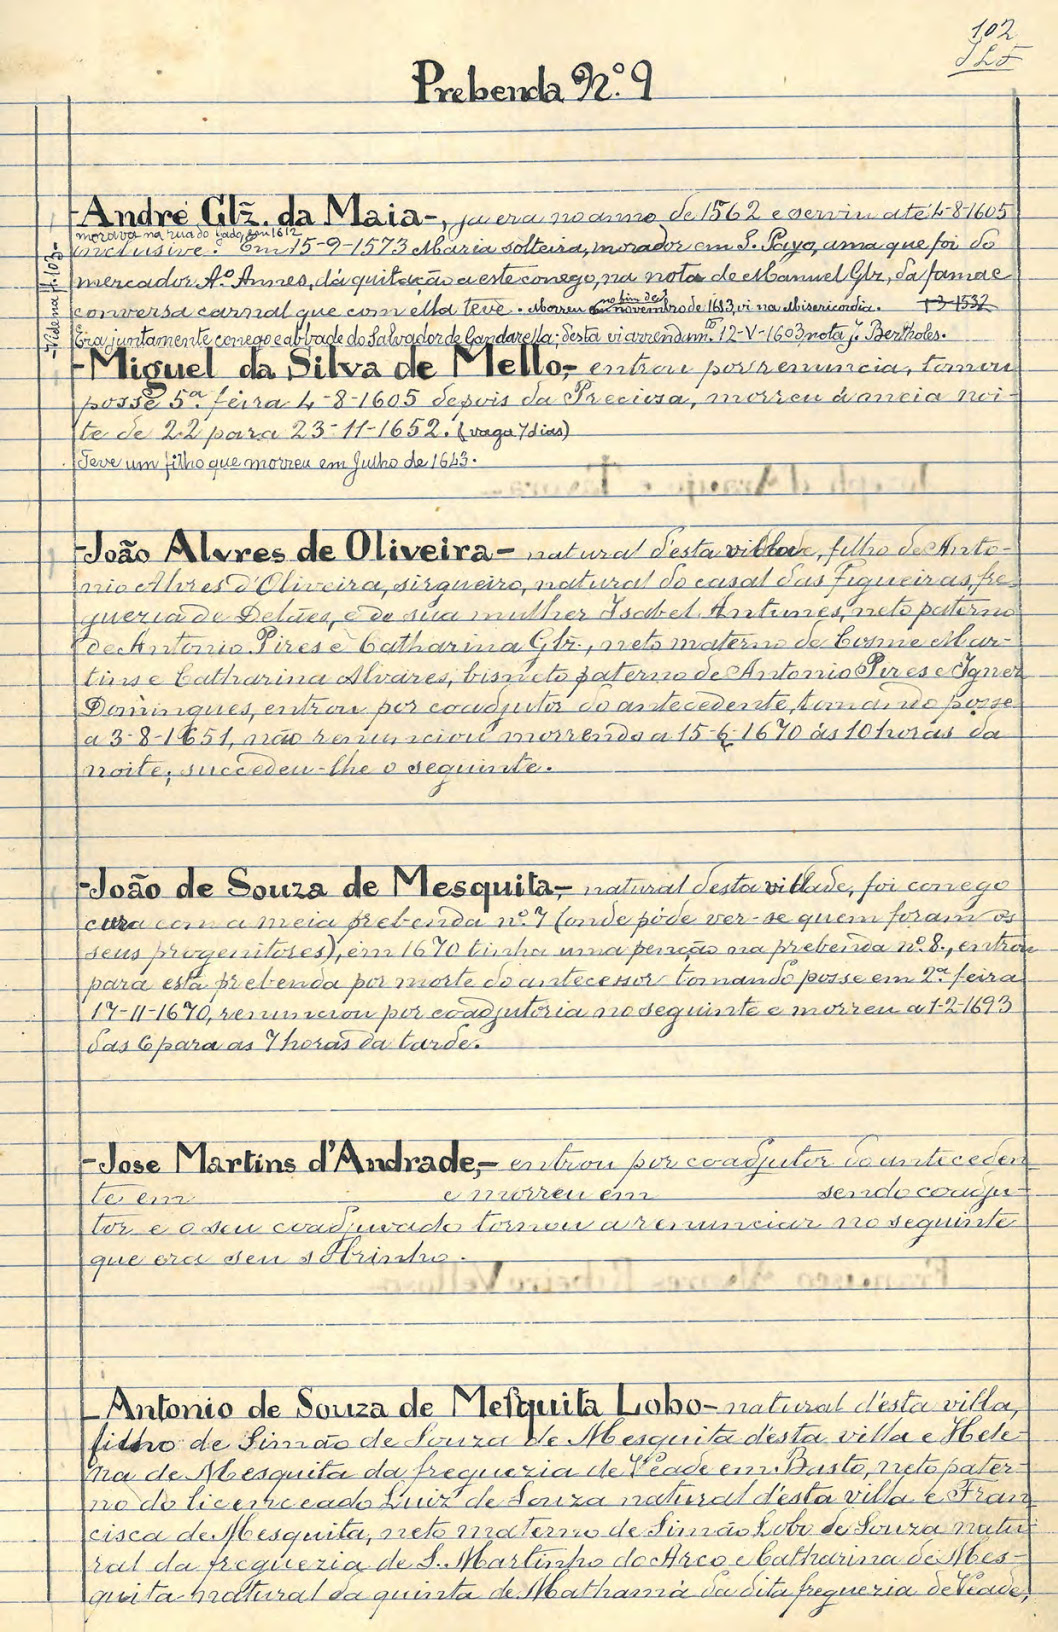 102
Prebenda N.º 9
-André Glz. da Maia-, ja era no anno de 1562 e serviu até 4-8-1605
morava na rua do Gado, em 1612
inclusive. Em 15-9-1573 Maria solteira, morador em S. Payo, ama que foi do
mercador A.º Annes, dá quitação a este conego, na nota de Manuel Glz, da fama e
conversa carnal que com ella teve. Morreu no fim de novembro de 1613, vi na Misericordia.
Era juntamente conego e abbade do Salvador de Gandarella; desta vi arrendam.to 12-V-1603 nota J. Bertholes.
-Vide na f. 103-
-Miguel da Silva de Mello,- entrou por renuncia, tomou
posse 5.ª feira 4-8-1605 depois da Preciosa, morreu á meia noi-
te de 22 para 23-11-1652. (vaga 7 dias)
Teve um filho que morreu em Julho de 1643.
-João Alvres de Oliveira- natural d'esta villa, filho de Anto-
nio Alvres d'Oliveira, sirgueiro, natural do casal das Figueiras, fre-
guezia de Delães, e de sua mulher Isabel Antunes, neto paterno
de Antonio Pires e Catharina Glz., neto materno de Cosme Mar-
tins e Catharina Alvares, bisneto paterno de Antonio Pires e Ignez
Domingues, entrou por coadjutor do antecedente, tomando posse
a 3-8-1651, não renunciou morrendo a 15-6-1670 ás 10 horas da
noite; succedeu-lhe o seguinte.
-João de Souza de Mesquita,- natural desta villa, foi conego
cura com a meia prebenda n.º 7 (onde póde ver-se quem foram os
seus progenitores), em 1670 tinha uma penção na prebenda n.º 8., entrou
para esta prebenda por morte do antecessor tomando posse em 2.ª feira
17-11-1670, renunciou por coadjutoria no seguinte e morreu a 1-2-1693
das 6 para as 7 horas da tarde.
-Jose Martins d'Andrade,- entrou por coadjutor do anteceden
te em e morreu em sendo coadju-
tor e o seu coadjuvado tornou a renunciar no seguinte
que era seu sobrinho.
-Antonio de Souza de Mesquita Lobo- natural d'esta villa,
filho de Simão de Souza de Mesquita d'esta villa e Hele-
na de Mesquita da freguezia de Veade em Basto, neto pater-
no do licenceado Luiz de Souza natural d'esta villa e Fran
cisca de Mesquita, neto materno de Simão Lobo de Souza natu-
ral da freguezia de S. Martinho do Arco e Catharina de Mes-
quita natural da quinta de Mathamá da dita freguezia de Veade,